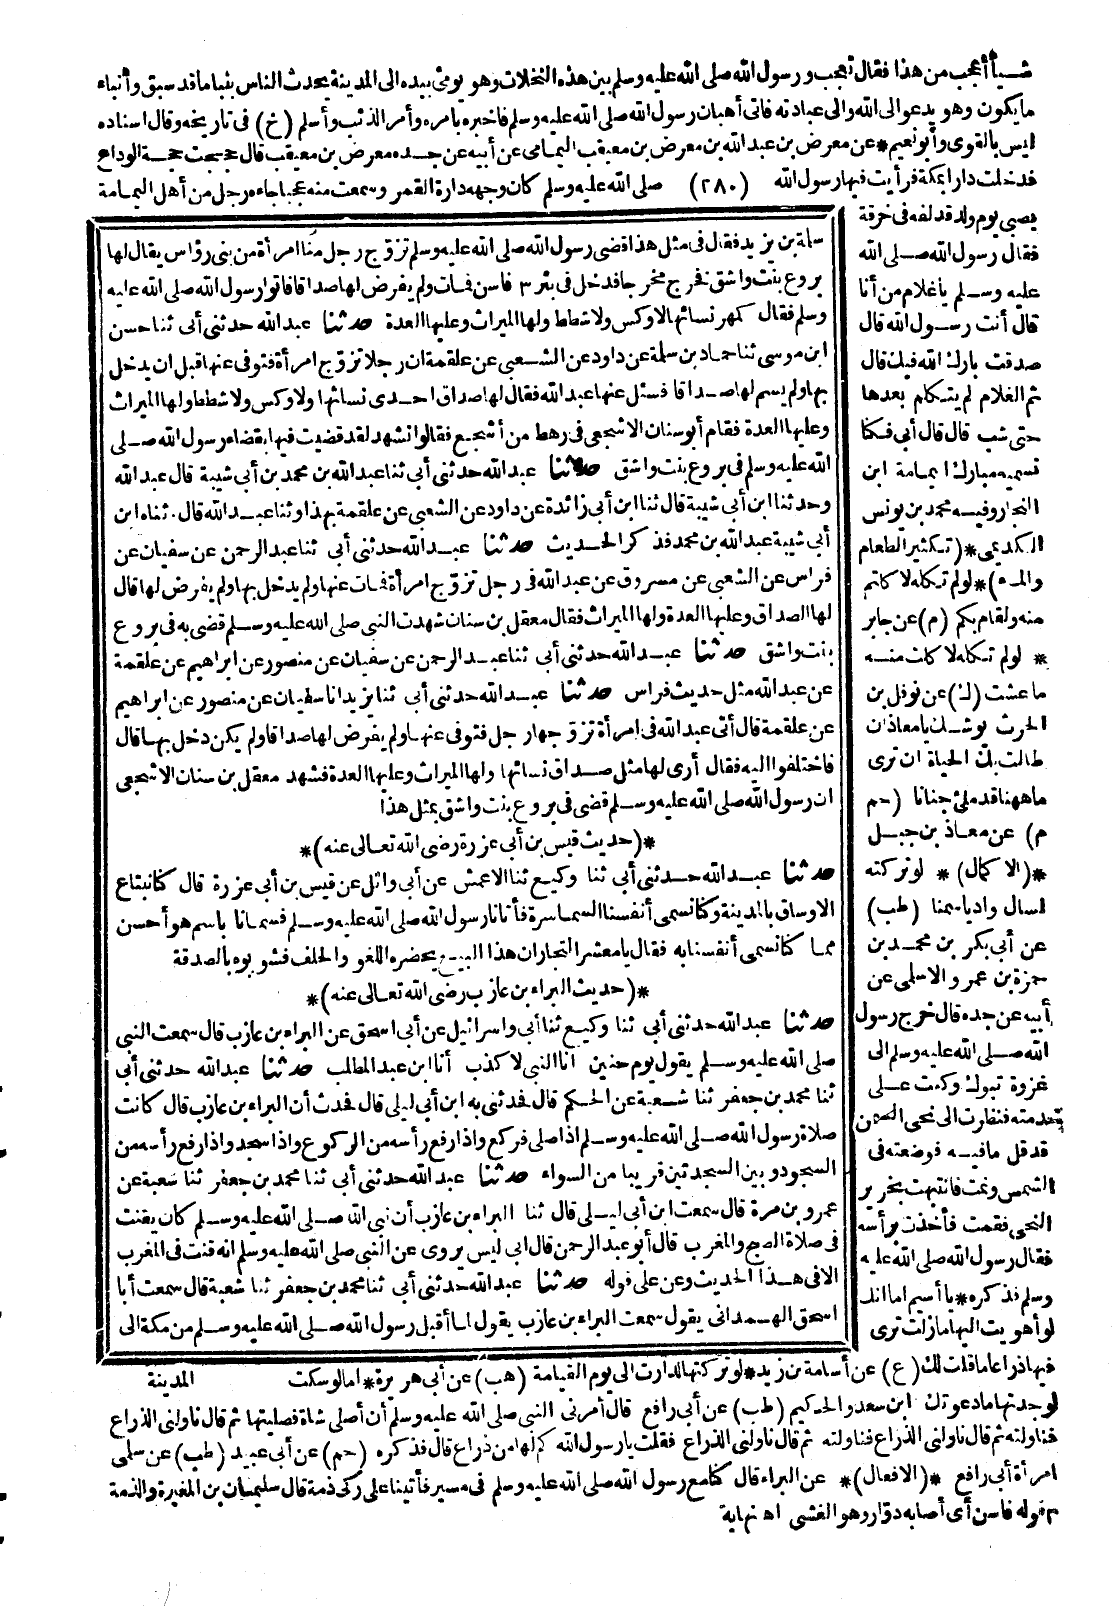 شيأ أعجب من هذا فقال تعجب ورسول الله صلى الله عليه وسلم بين هذه النخلات وهو يومئ بيده الى المدينة يحدث الناس بنبا ما قد سبق وأنباء
ما يكون وهو يدعو الى الله والى عبادته فاتى أهبان رسول الله صلى الله عليه وسلم فاخبره بامره وأمر الذئب وأسلم (خ) فى تاريخه وقال اسناده
ليس بالقوى وأبو نعيم * عن معرض بن عبد الله بن معرض بن معيقب اليمامى عن أبيه عن جده معرض بن معيقب قال حججت حجة الوداع
فدخلت دارا بمكة فرأيت فيها رسول الله (٢٨٠) صلى الله عليه وسلم كان وجهه دارة القمر وسمعت منه عجبا جاءه رجل من أهل اليمامة
بصبى يوم ولد قد لفه فى خرقة
فقال رسول الله صلى الله
عليه وسلم يا غلام من أنا
قال أنت رسول الله قال
صدقت بارك الله فيك قال
ثم الغلام لم يتكلم بعدها
حتى شب قال قال أبى فكنا
نسميه مبارك اليمامة ابن
النجار وفيه محمد بن يونس
الكديمى * (تكثير الطعام
والماء) * لو لم تكله لاكلتم
منه ولقام بكم (م) عن جابر
* لو لم تكله لاكلت منه
ما عشت (ك) عن نوفل بن
الحرث يوشك يا معاذ ان
طالت بك الحياة ان ترى
ما ههنا قد ملئ جنانا (حم
م) عن معاذ بن جبل
* (الاكمال) * لو تركته
لسال واديا سمنا (طب)
عن أبى بكر بن محمد بن
حمزة بن عمرو الاسلمى عن
أبيه عن جده قال خرج رسول
الله صلى الله عليه وسلم الى
غزوة تبوك وكنت على
خدمته فنظرت الى نحى السمن
قد قل ما فيه فوضعته فى
الشمس ونمت فانتبهت بخرير
النحى فقمت فأخذت برأسه
فقال رسول الله صلى الله عليه
وسلم فذكره * يا أسيم اما انك
لو أهويت اليها ما زلت ترى
سلمة بن يزيد فقال فى مثل هذا قضى رسول الله صلى الله عليه وسلم تزوج رجل منا امرأة من بنى رؤاس يقال لها
بروع بنت واشق فخرج مخرجا فدخل فى بئر ٣ فاسن فمات ولم يفرض لها صداقا فاتوا رسول الله صلى الله عليه
وسلم فقال كمهر نسائها لا وكس ولا شطط ولها الميراث وعليها العدة حدثنا عبد الله حدثنى أبى ثنا حسن
ابن موسى ثنا حماد بن سلمة عن داود عن الشعبى عن علقمة ان رجلا تزوج امرأة فتوفى عنها قبل ان يدخل
بها ولم يسم لها صداقا فسئل عنها عبد الله فقال لها صداق احدى نسائها ولا وكس ولا شطط ولها الميراث
وعليها العدة فقام أبو سنان الاشجعى فى رهط من أشجع فقالوا نشهد لقد قضيت فيها بقضاء رسول الله صلى
الله عليه وسلم فى بروع بنت واشق حدثنا عبد الله حدثنى أبى ثنا عبد الله بن محمد بن أبى شيبة قال عبد الله
وحدثنا ابن أبى شيبة قال ثنا ابن أبى زائدة عن داود عن الشعبى عن علقمة بهذا وثنا عبد الله قال . ثناه ابن
أبى شيبة عبد الله بن محمد فذكر الحديث حدثنا عبد الله حدثنى أبى ثنا عبد الرحمن عن سفيان عن
فراس عن الشعبى عن مسروق عن عبد الله فى رجل تزوج امرأة فمات عنها ولم يدخل بها ولم يفرض لها قال
لها الصداق وعليها العدة ولها الميراث فقال معقل بن سنان شهدت النبى صلى الله عليه وسلم قضى به فى بروع
بنت واشق حدثنا عبد الله حدثنى أبى ثنا عبد الرحمن عن سفيان عن منصور عن ابراهيم عن علقمة
عن عبد الله مثل حديث فراس حدثنا عبد الله حدثنى أبى ثنا يزيد انا سفيان عن منصور عن ابراهيم
عن علقمة قال أتى عبد الله فى امرأة تزوجها رجل فتوفى عنها ولم يفرض لها صداقا ولم يكن دخل بها قال
فاختلفوا اليه فقال أرى لها مثل صداق نسائها ولها الميراث وعليها العدة فشهد معقل بن سنان الاشجعى
ان رسول الله صلى الله عليه وسلم قضى فى بروع بنت واشق بمثل هذا
* (حديث قيس بن أبى غرزة رضى الله تعالى عنه) *
حدثنا عبد الله حدثنى أبى ثنا وكيع ثنا الاعمش عن أبى وائل عن قيس بن أبى غرزة قال كنا نبتاع
الاوساق بالمدينة وكنا نسمى أنفسنا السماسرة فأتانا رسول الله صلى الله عليه وسلم فسمانا باسم هو أحسن
مما كنا نسمى أنفسنا به فقال يا معشر التجار ان هذا البيع يحضره اللغو والحلف فشوبوه بالصدقة
* (حديث البراء بن عازب رضى الله تعالى عنه) *
حدثنا عبد الله حدثنى أبى ثنا وكيع ثنا أبى واسرائيل عن أبى اسحق عن البراء بن عازب قال سمعت النبى
صلى الله عليه وسلم يقول يوم حنين أنا النبى لا كذب أنا ابن عبد المطلب حدثنا عبد الله حدثنى أبى
ثنا محمد بن جعفر ثنا شعبة عن الحكم قال فحدثنى به ابن أبى ليلى قال فحدث أن البراء بن عازب قال كانت
صلاة رسول الله صلى الله عليه وسلم اذا صلى فركع واذا رفع رأسه من الركوع واذا سجد واذا رفع رأسه من
السجود وبين السجدتين قريبا من السواء حدثنا عبد الله حدثنى أبى ثنا محمد بن جعفر ثنا شعبة عن
عمرو بن مرة قال سمعت ابن أبى ليلى قال ثنا البراء بن عازب أن نبى الله صلى الله عليه وسلم كان يقنت
فى صلاة الصبح والمغرب قال أبو عبد الرحمن قال ابى ليس يروى عن النبى صلى الله عليه وسلم انه قنت فى المغرب
الا فى هذا الحديث وعن على قوله حدثنا عبد الله حدثنى أبى ثنا محمد بن جعفر ثنا شعبة قال سمعت أبا
اسحق الهمدانى يقول سمعت البراء بن عازب يقول لما أقبل رسول الله صلى الله عليه وسلم من مكة الى
المدينة
فيها ذراعا ما قلت لك (ع) عن أسامة بن زيد * لو تركتها لدارت الى يوم القيامة (هب) عن أبى هريرة * اما لو سكت
لوجدتها ما دعوتك ابن سعد والحكيم (طب) عن أبى رافع قال أمرنى النبى صلى الله عليه وسلم أن أصلى شاة فصليتها ثم قال ناولنى الذراع
فناولته ثم قال ناولنى الذراع فناولته ثم قال ناولنى الذراع فقلت يا رسول الله كم لها من ذراع قال فذكره (حم) عن أبى عبيد (طب) عن سلمى
امرأة أبى رافع * (الافعال) * عن البراء قال كنا مع رسول الله صلى الله عليه وسلم فى مسير فأتينا على ركى ذمة قال سليمان بن المغيرة والذمة
٣ قوله فاسن أى أصابه دوار وهو الغشى اه نهاية